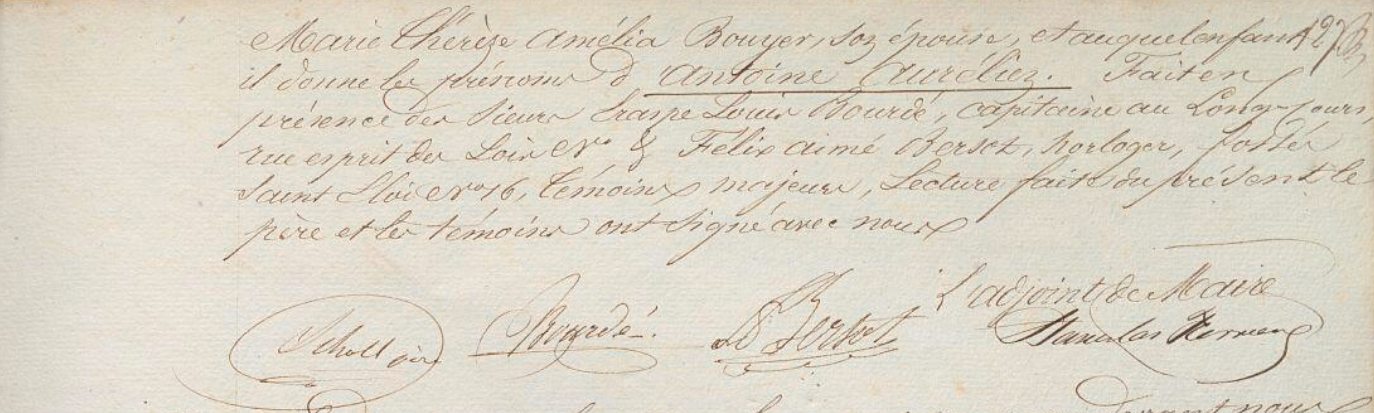 Marie Thérèze Amélia Bouyer, son épouse, et auquel enfant
il donne les prénoms d'Antoine Aurélien. Fait en
présence des Sieurs Louis Bourdé, capitaine au Long-cours,
rue esprit des Loix N° 8 Félix aimé Bersot, horloger, fossés
Saint Eloi N° 16, témoins majeurs, Lecture faite du présent le
père et les témoins ont signé avec nous
L'adjoint de Maire
Scholl père Bourdé. Bersot Stanislas
devant nous